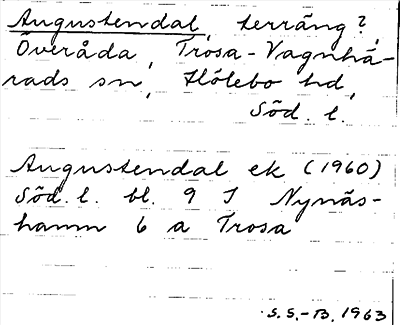 Augustendal, terräng?,
Överåda, Trosa-Vagnhä-
rads sn, Hölebo hd,
Söd. l.
Augustendal ek (1960)
Söd. l. bl. 9 I Nynäs-
hamn 6 a Trosa
S.S.-B. 1963